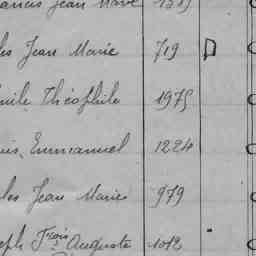 ancis Jean Marie 1315
les Jean Marie 719 D
mile Théophile 1975
uis, Emmanuel 1224
les Jean Marie 979
seph Frois Auguste 1012